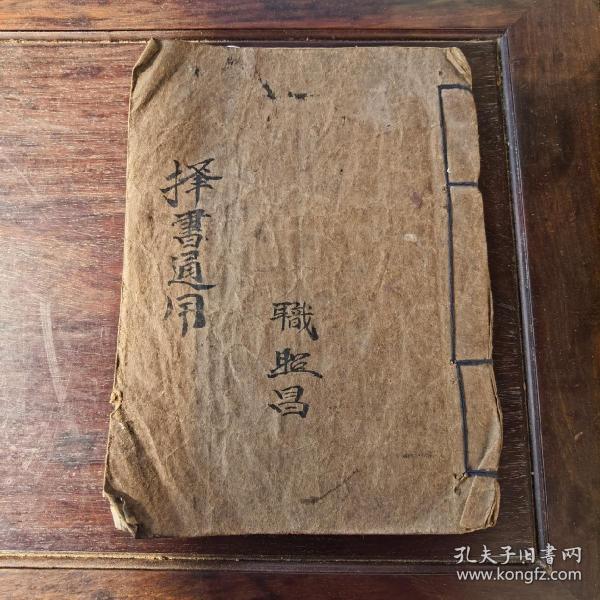 择書通用
職照昌
孔夫子旧書网
www.kongfz.com